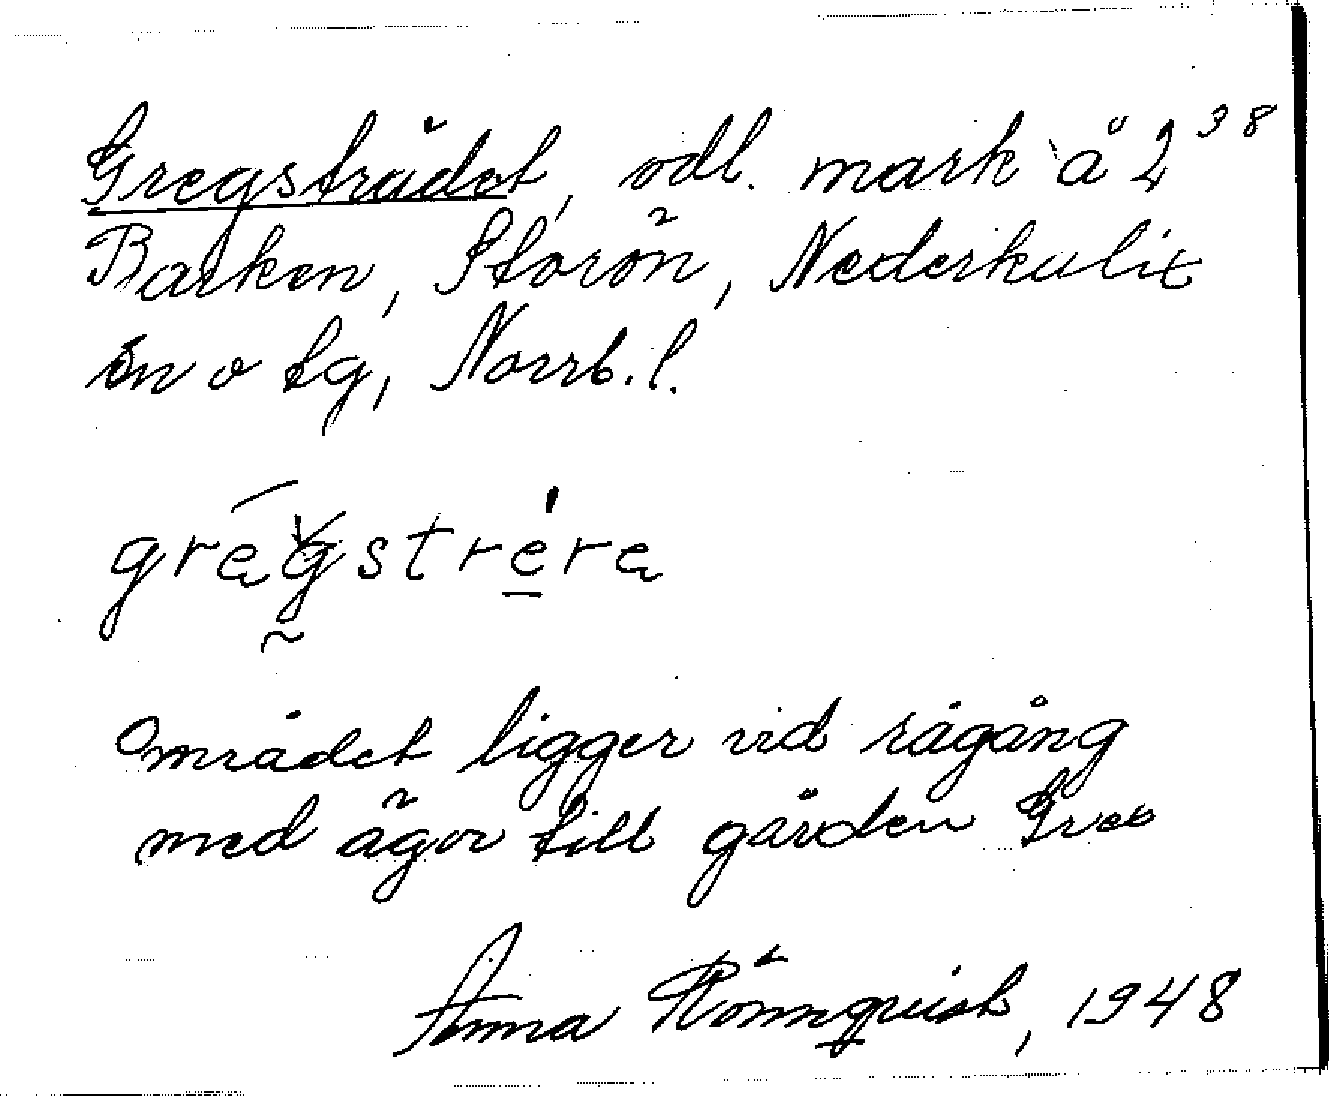 Gregsträdet, odl. mark å 2³⁸
Barken, Storön, Nederkalix
sn o tg, Norrb. l.
gregstrere
Området ligger vid rågång
med ägor till gården
Anna Rönnqvist, 1948